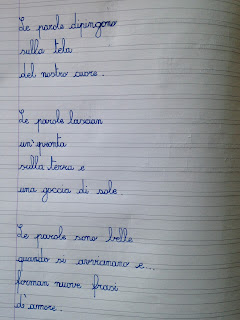 Le parole dipingono
sulla tela
del nostro cuore.
Le parole lascian
un'impronta
sulla terra e
una goccia di sole.
Le parole sono belle
quando si avvicinano e...
forman nuove frasi
d'amore.